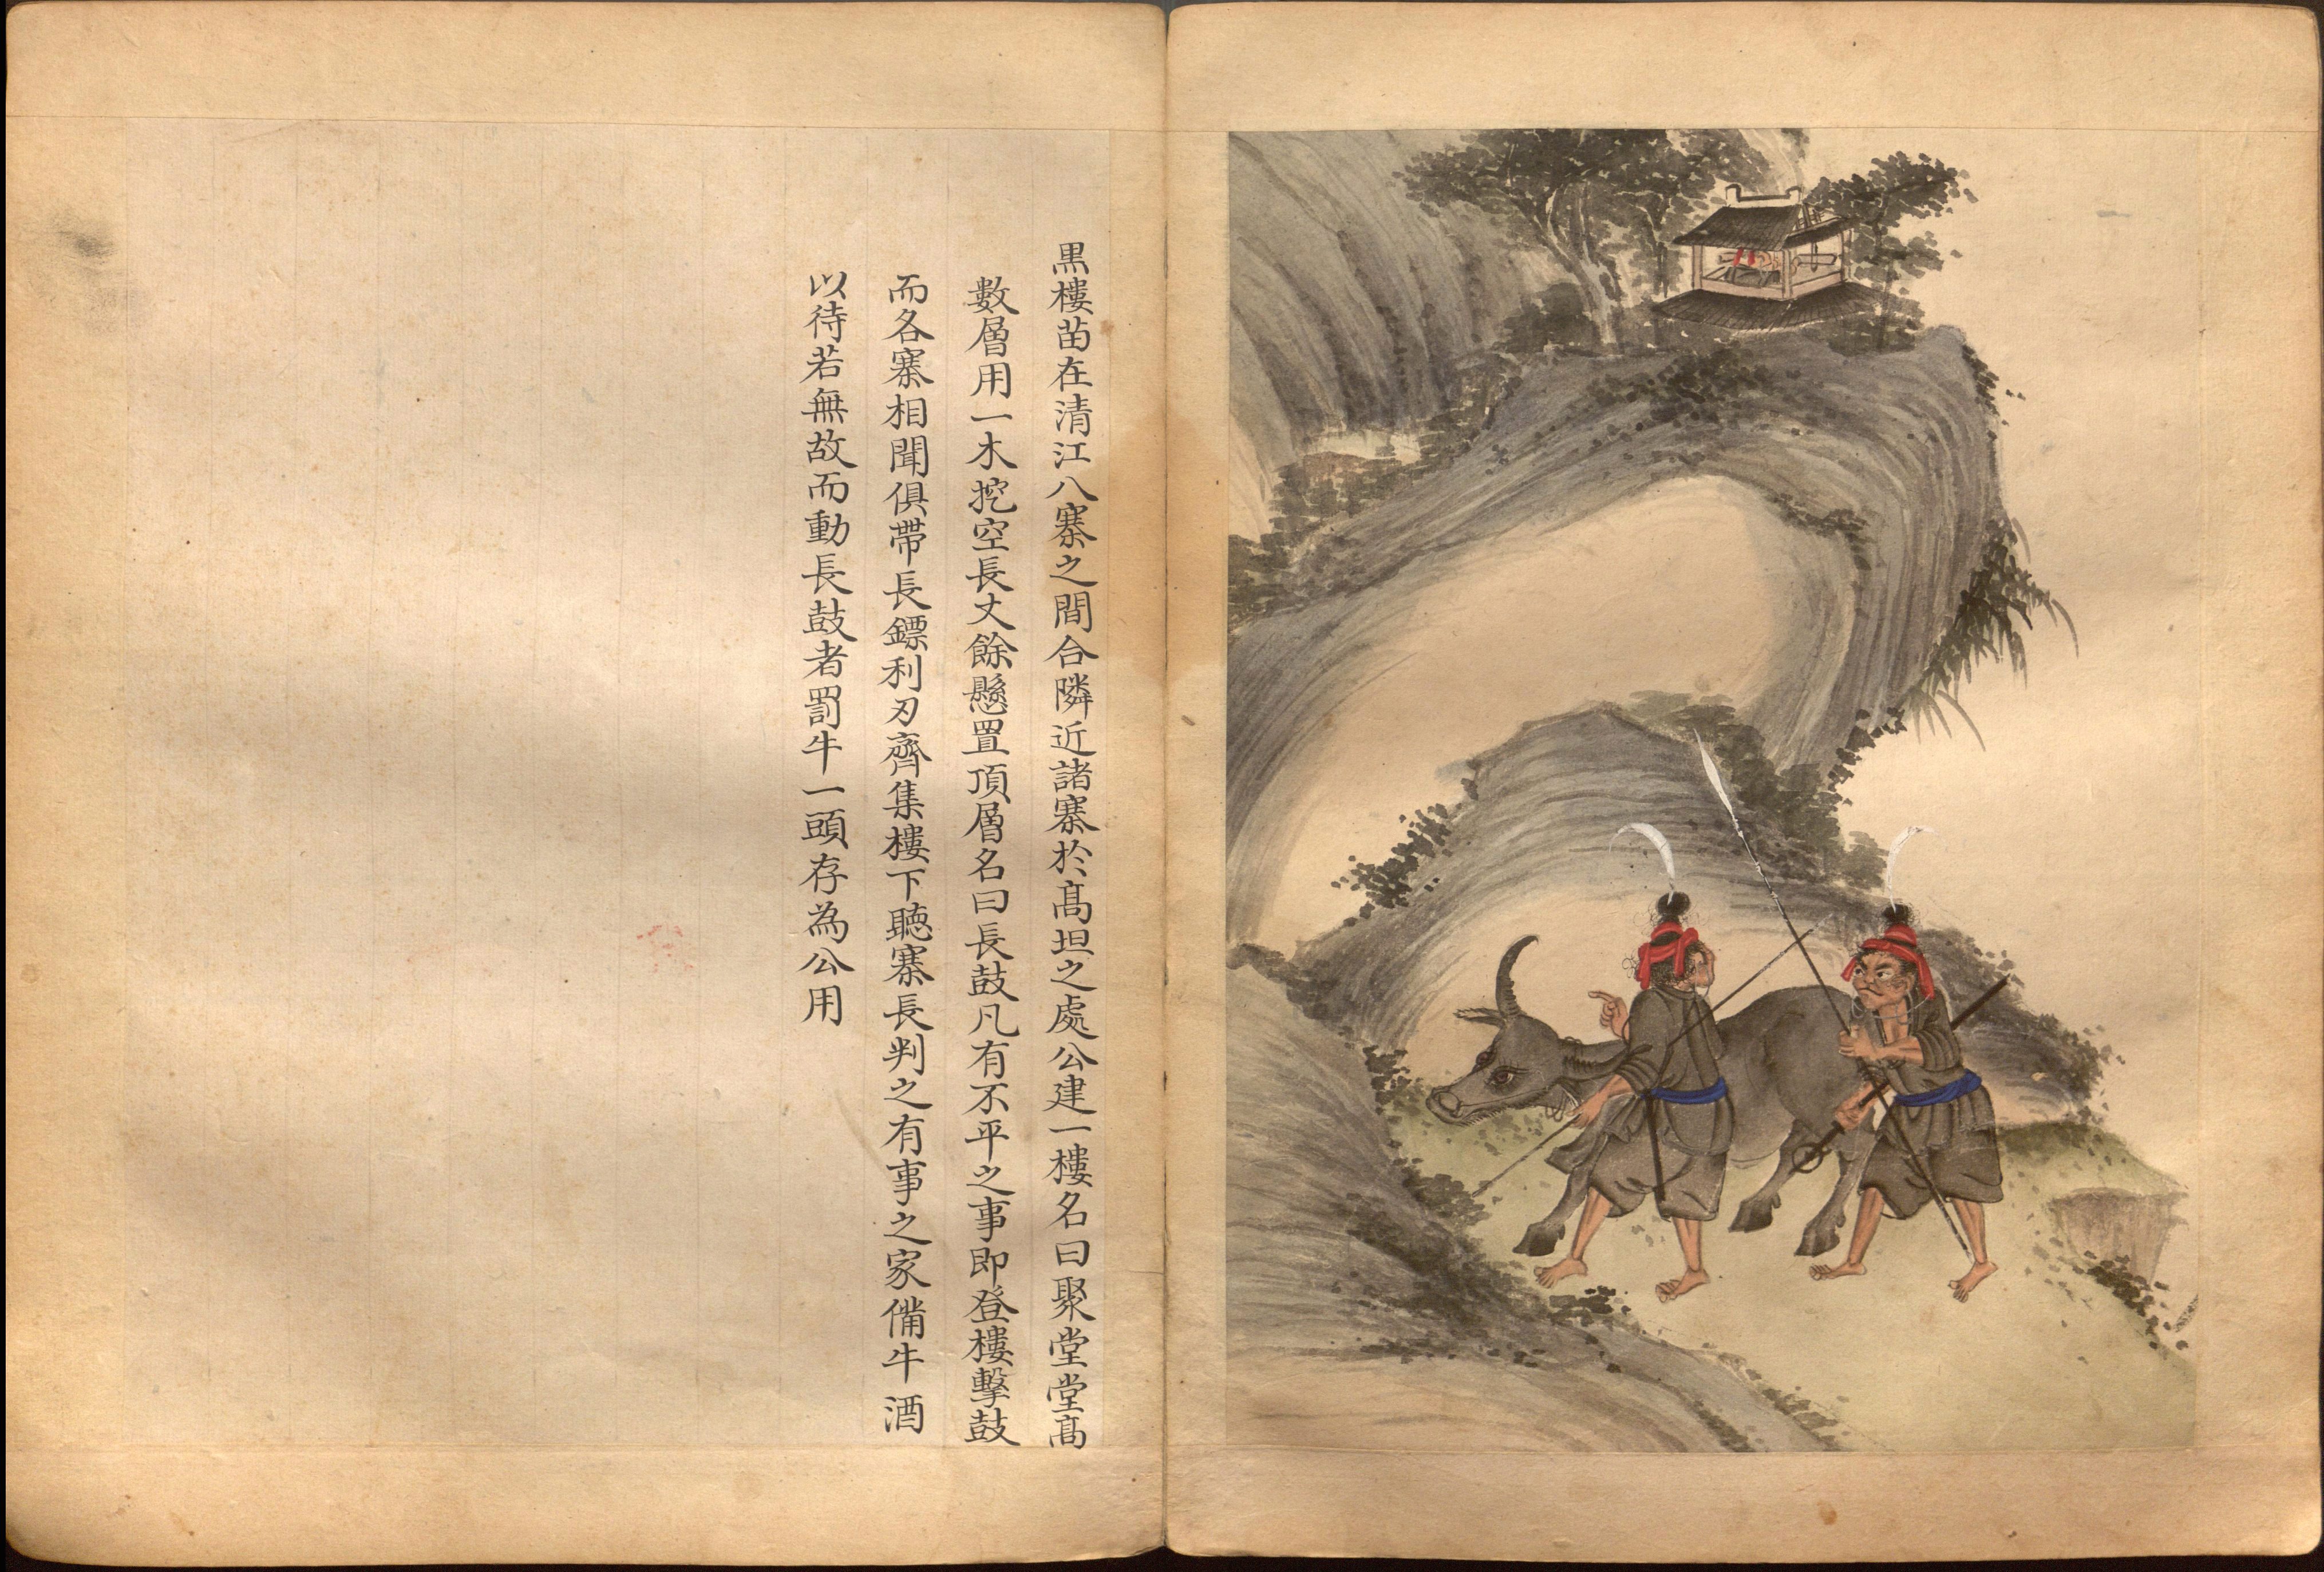 黒樓苗在清江八寨之間合隣近諸寨於髙坦之處公建一樓名曰聚堂堂髙
數層用一木挖空長丈餘懸置頂層名曰長鼓凡有不平之事即登樓擊鼓
而各寨相聞俱帶長鏢利刃齊集樓下聽寨長判之有事之家備牛酒
以待若無故而動長鼓者罰牛一頭存為公用